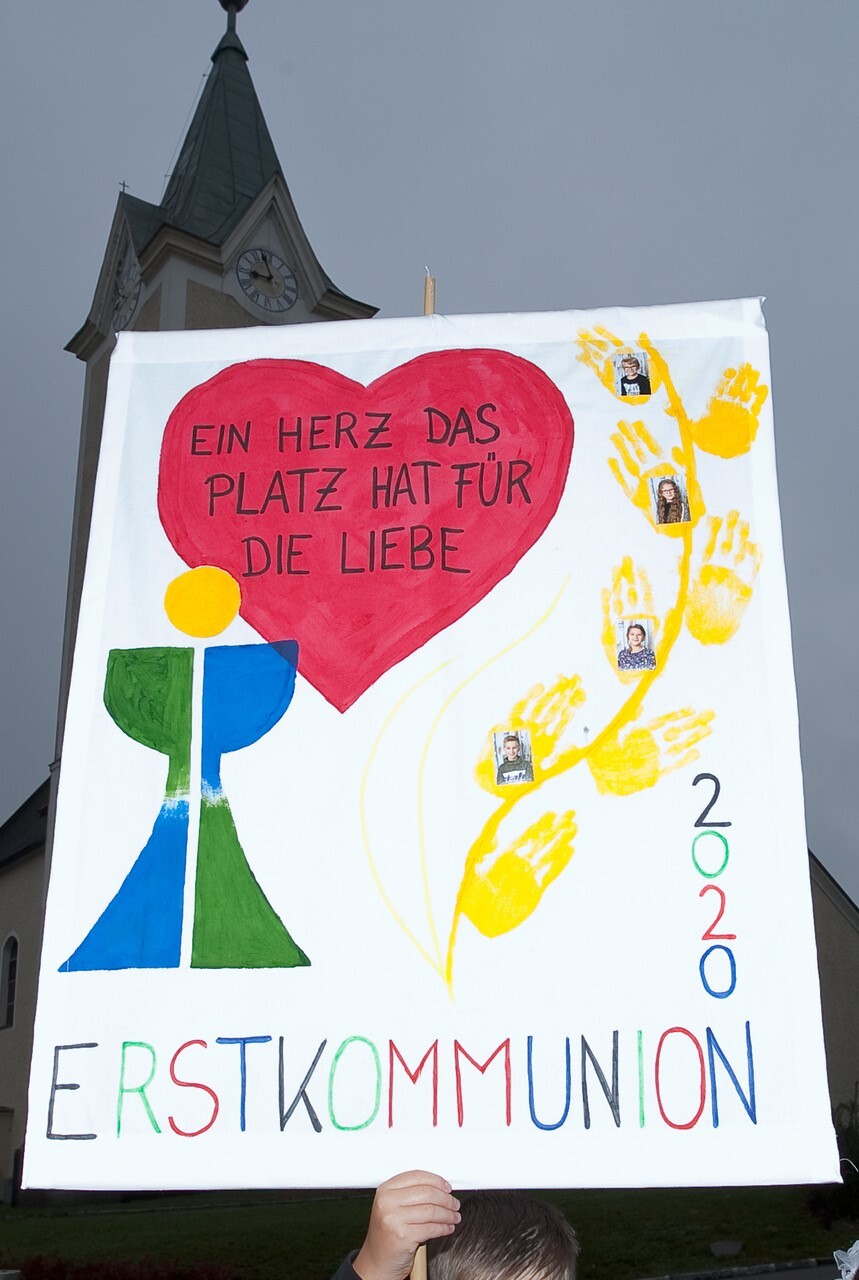 EIN HERZ DAS
PLATZ HAT FÜR
DIE LIEBE
2020
ERSTKOMMUNION